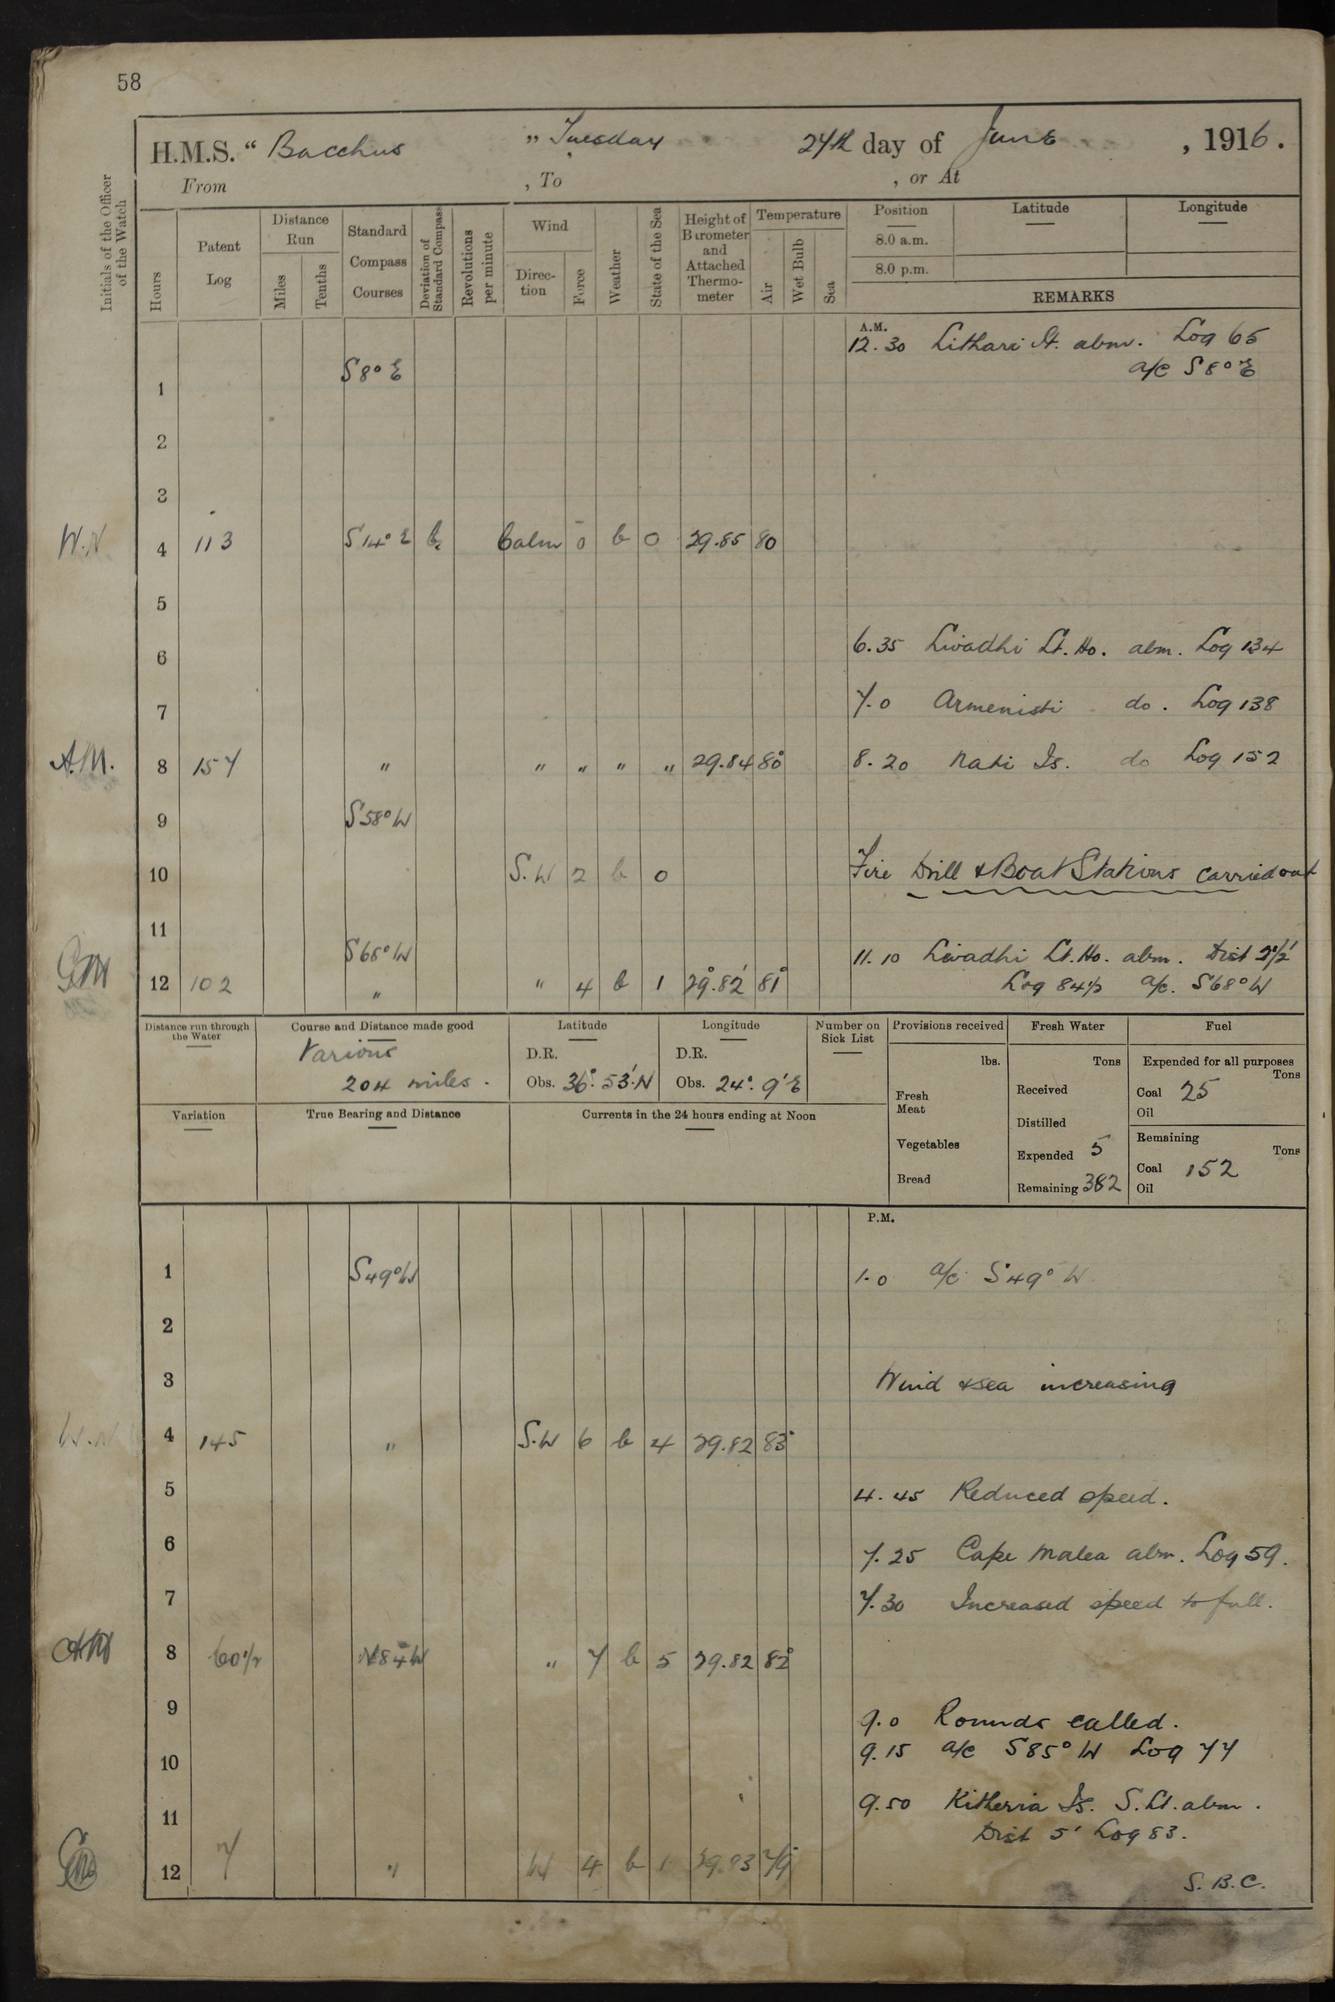 58
H.M.S. “ Bacchus ” Tuesday 24th day of June , 1916.
From , To , or At
Initials of the Officer of the Watch
Hours
Patent Log
Distance Run
Miles
Tenths
Standard Compass Courses
Deviation of Standard Compass
Revolutions per minute
Wind
Direction
Force
Weather
State of the Sea
Height of Barometer and Attached Thermometer
Temperature
Air
Wet Bulb
Sea
Position
8.0 a.m.
8.0 p.m.
Latitude
Longitude
REMARKS
A.M.
12.30 Lithari Lt. abm. Log 65
1 S 8° E a/c S 8° E
2
3
W.N. 4 113 S 14° E Calm 0 b 0 29.85 80
5
6 6.35 Livadhi Lt. Ho. abm. Log 134
7 7.0 Armenisti do. Log 138
A.M. 8 157 " " " " " 29.84 80° 8.20 Nati Is. do Log 152
9 S 58° W
10 S.W 2 b 0 Fire Drill & Boat Stations carried out
11 S 68° W 11.10 Livadhi Lt. Ho. abm. Dist 2½'
12 102 " " 4 b 1 29.82 81° Log 84½ a/c. S 68° W
Distance run through the Water
Course and Distance made good
Various
204 miles.
Latitude
D.R.
Obs. 36°. 53' N
Longitude
D.R.
Obs. 24°. 9' E
Number on Sick List
Provisions received
lbs.
Fresh Meat
Vegetables
Bread
Fresh Water
Tons
Received
Distilled
Expended 5
Remaining 382
Fuel
Expended for all purposes
Tons
Coal 25
Oil
Remaining
Tons
Coal 152
Oil
Variation
True Bearing and Distance
Currents in the 24 hours ending at Noon
P.M.
1 S 49° W 1.0 a/c S 49° W
2
3 Wind & sea increasing
W.N 4 145 " S.W 6 b 4 29.82 83°
5 4.45 Reduced speed.
6 7.25 Cape Malea abm. Log 59.
7 7.30 Increased speed to full.
AM 8 60½ N 84 W " 7 b 5 29.82 82°
9 9.0 Rounds called.
10 9.15 a/c S 85° W Log 77
11 9.50 Kitheria Is. S. Lt. abm.
Dist 5' Log 83.
12 7 " W 4 b 1 29.83 79°
S. B. C.